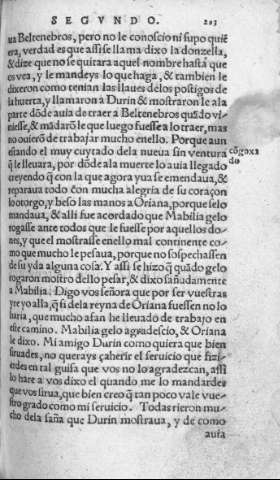 SEGVNDO. 203
ua Beltenebros, pero no le conoscio ni supo quiē
era, verdad es que assi se llama dixo la donzella,
& dize que no se quitara aquel nombre hasta que
os vea, y le mandeys lo que haga, & tambien le
dixeron como tenian las llaues dėlos postigos de
la huerta, y llamaron a Durin & mostraron le ala
parte dōde auia de traer a Beltenebros quādo vi-
niesse, & mādarō le que luego fuesse a lo traer, mas
no ouierō de trabajar mucho en ello. Porque aun
estando el muy cuytado dela nueua sin ventura
cōgoxa
do
q̄ le lleuara, por dōde ala muerte lo auia llegado
creyendo q̄ con la que agora yua se emendaua, &
reparaua todo con mucha alegria de su coraçon
lo otorgo, y beso las manos a Oriana, porque se lo
mandaua, & alli fue acordado que Mabilia gelo
rogasse ante todos que le fuesse por aquellos do-
nes, y que el mostrasse en ello mal continente co-
mo que mucho le pesaua, porque no sospechassen
de su yda alguna cosa. Y assi se hizo q̄ quādo gelo
rogaron mostro dello pesar, & dixo sañudamente
a Mabilia. Digo vos señora que por ser vuestras
yre yo alla, q̄ si dela reyna de Oriana fuessen no lo
haria, que mucho afan he lleuado de trabajo en
este camino. Mabilia gelo agradescio, & Oriana
le dixo. Mi amigo Durin como quiera que bien
siruades, no querays çaherir el seruicio que fizi-
erdes en tal guisa que vos no lo agradezcan, assi
lo hare a vos dixo el quando me lo mandardes
que vos sirua, que bien creo q̄ tan poco vale vue-
stro grado como mi seruicio. Todas rieron mu-
cho dela saña que Durin mostraua, y de como
auia